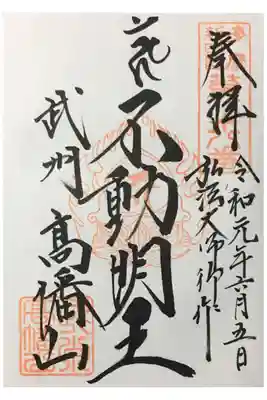 奉拝
令和元年六月五日
弘法大師御作
不動明王
武州 高幡山